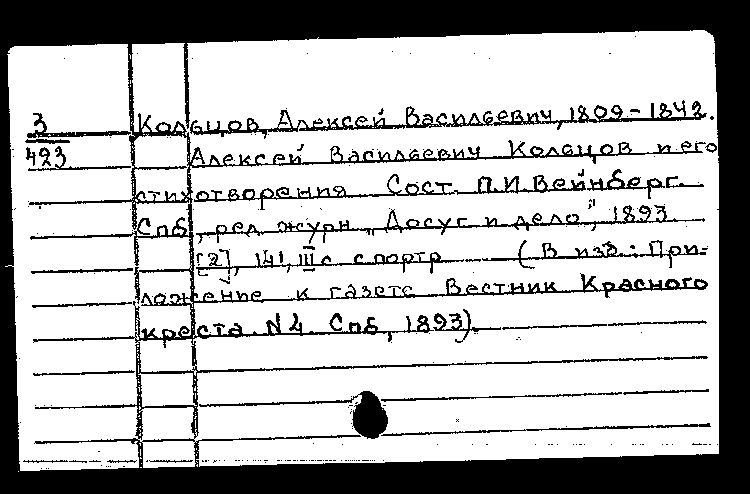 3
423
Кольцов, Алексей Васильевич, 1809-1842.
Алексей Васильевич Кольцов и его
стихотворения Сост. П.И. Вейнберг.
Спб, ред. журн „Досуг и дело", 1893.
[2], 141, III с с портр (В изд.: При-
ложение к газете Вестник Красного
креста. N 4. Спб, 1893).